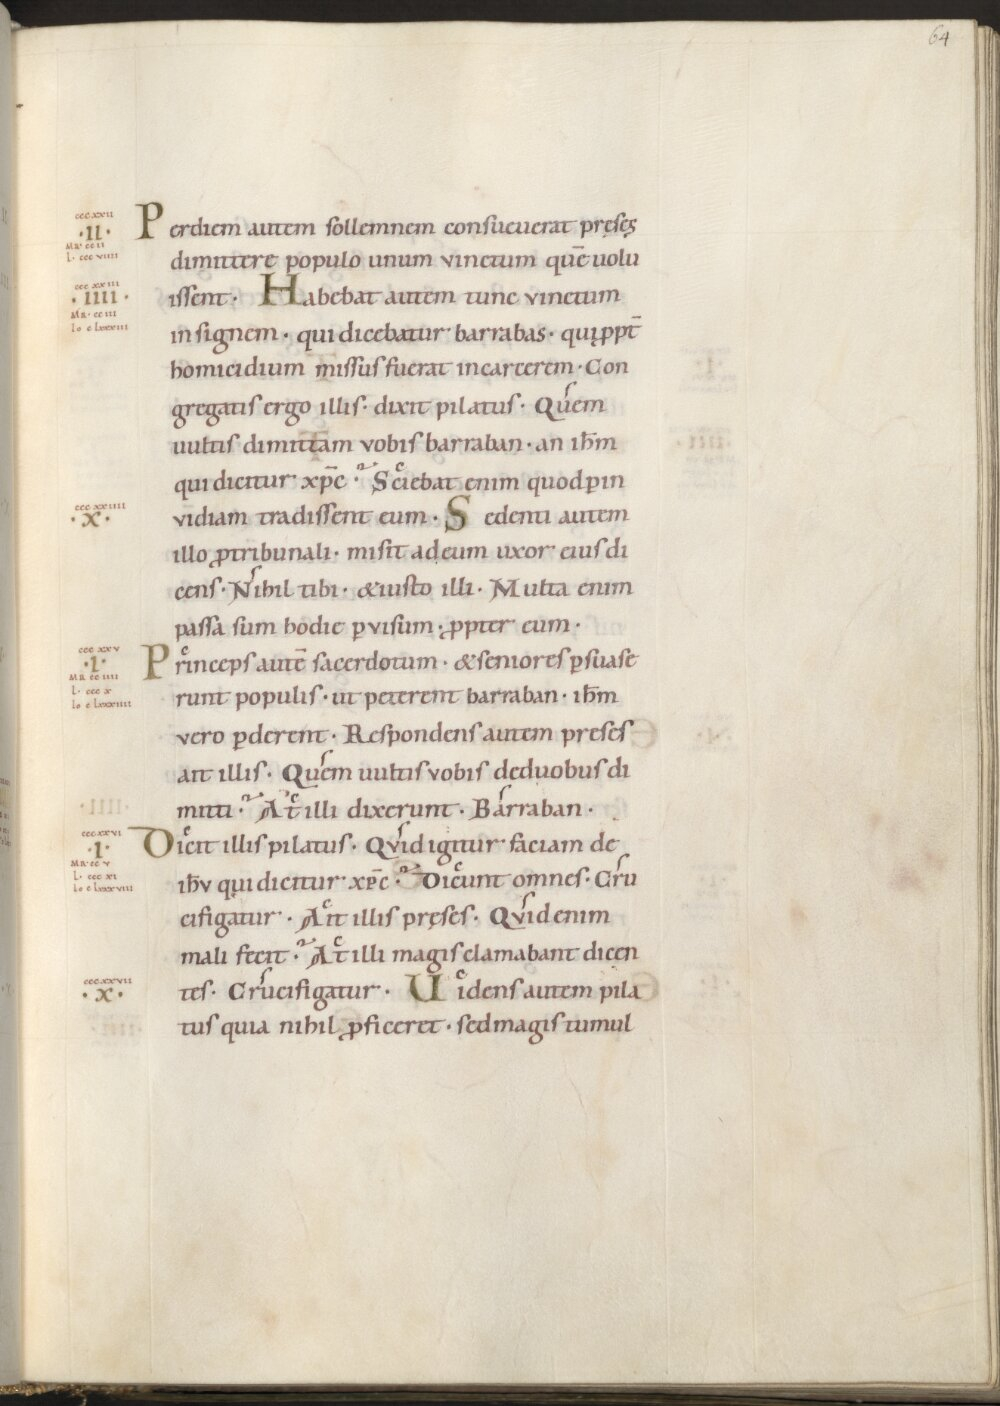 64
cccxxii
·II·
MR· cc II
L· ccc viiii
Perdiem autem sollemnem consueuerat pręsęs
dimittere populo unum vinctum quē uolu
cccxxiii
·IIII·
MR· cc iii
Io c lxxxiii
issent· Habebat autem tunc vinctum
insignem· qui dicebatur barrabas· qui ꝓpt̄
homicidium missus fuerat incarcerem· Con
gregatis ergo illis· dixit pilatus· Quem
uultis dimittam vobis barraban· an ih̄m
qui dicitur xp̄c· Sciebat enim quod ꝑin
cccxxiiii
·X·
vidiam tradissent eum· Sedenti autem
illo ꝓtribunali· misit adeum uxor eius di
cens· Nihil tibi· &iusto illi· Multa enim
passa sum hodie ꝑvisum· ꝓpter eum·
cccxxv
·I·
MR cc iiii
L· ccc x
Io c lxxxiiii
Princeps autē sacerdotum· &seniores ꝑsuase
runt populis· ut peterent barraban· ih̄m
vero ꝑderent· Respondens autem preses
ait illis· Quem uultis vobis deduobus di
mitti· At illi dixerunt· Barraban·
cccxxvi
·I·
MR· cc v
L· ccc xi
Io c lxxxviii
Dicit illis pilatus· Quid igitur faciam de
ih̄v qui dicitur xp̄c· Dicunt omnes· Cru
cifigatur· Ait illis pręses· Quid enim
mali fecit· At illi magis clamabant dicen
cccxxvii
·X·
tes· Crucifigatur· Uidens autem pila
tus quia nihil ꝓficeret· sed magis tumul